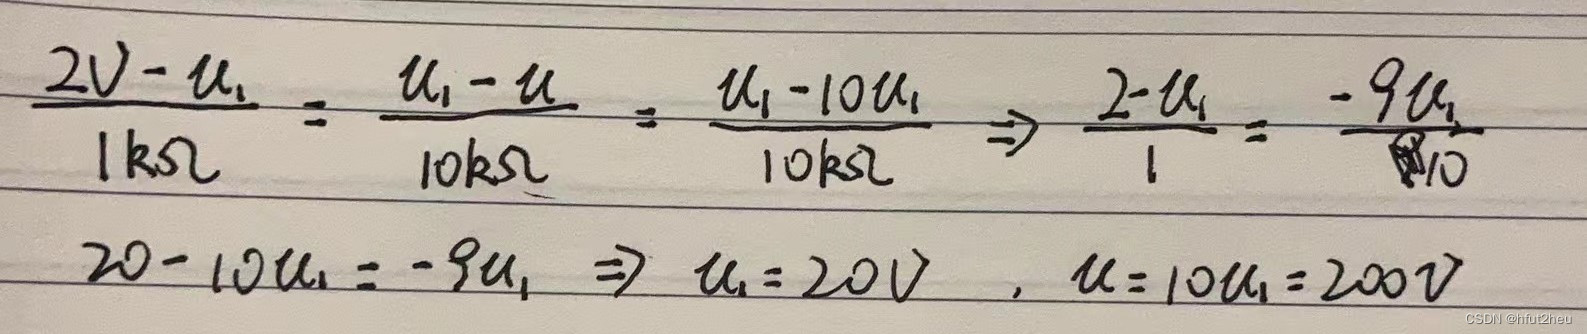 (2V - u₁)/1kΩ = (u₁ - u)/10kΩ = (u₁ - 10u₁)/10kΩ ⇒ (2 - u₁)/1 = (-9u₁)/10
20 - 10u₁ = -9u₁ ⇒ u₁ = 20V , u = 10u₁ = 200V
CSDN @hfut2heu